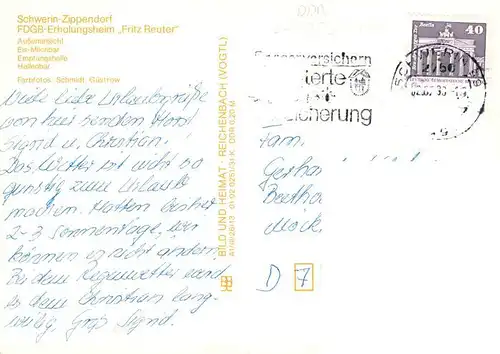 Schwerin-Zippendorf
FDGB-Erholungsheim „Fritz Reuter"
Außenansicht
Eis-Milchbar
Empfangshalle
Hallenbar
Farbfotos: Schmidt, Güstrow
Viele liebe Urlaubsgrüße
von hier senden Horst
Sigrid u. Christian.
Das Wetter ist nicht so
günstig zum Urlaub
machen. Hatten bisher
2-3 Sonnentage, wir
können es nicht ändern.
Bei dem Regenwetter wird
es dem Christian lang-
weilig. Gruß Sigrid.
BILD UND HEIMAT · REICHENBACH (VOGTL)
A1/III/26/13 01 02 0251/31 K DDR 0,20 M
40
SCHWERIN
2756
sicherung
Fam.
Gerha
Beetho
Möck
D 7